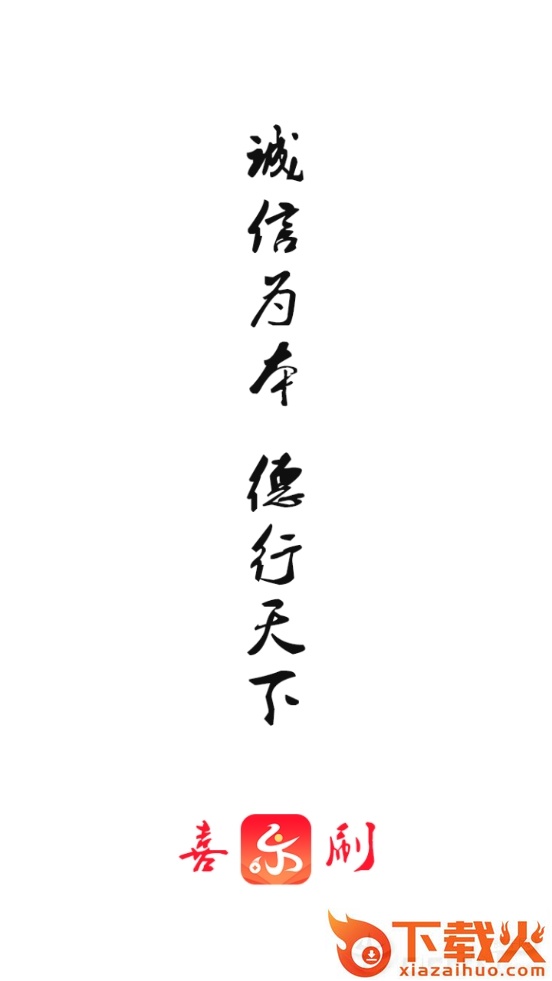 诚信为本 德行天下
喜乐刷
下载火
xiazaihuo.com